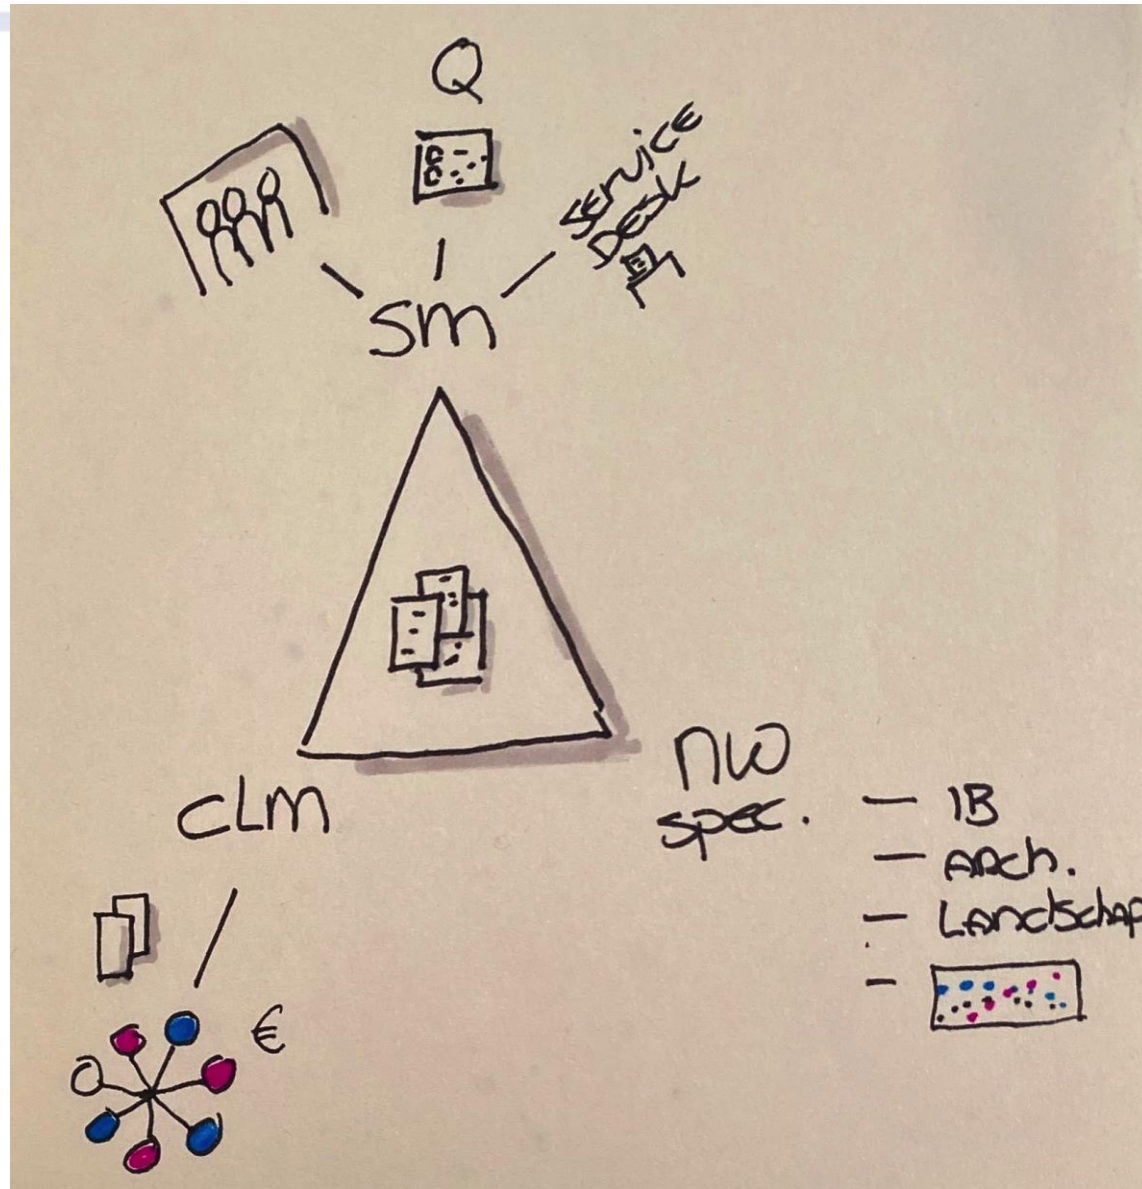 Q
Service
Desk
SM
CLM
NW
spec.
— IB
— Arch.
— Landschap
—
€